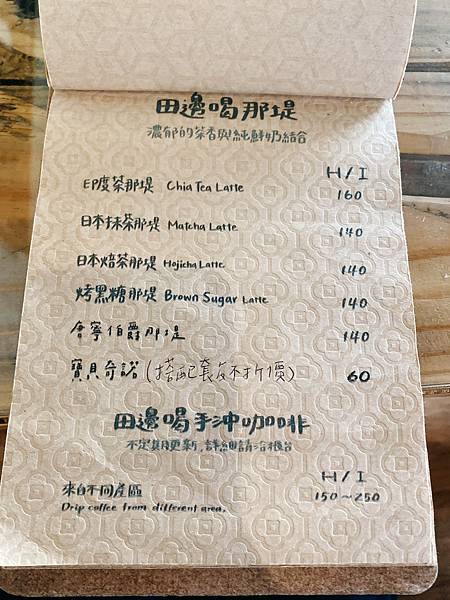 田邊喝那堤
濃郁的茶香與純鮮奶結合
H/I
印度茶那堤 Chia Tea Latte 160
日本抹茶那堤 Matcha Latte 140
日本焙茶那堤 Hojicha Latte 140
烤黑糖那堤 Brown Sugar Latte 140
會寧伯爵那堤 140
寶貝奇諾(搭配套餐不折價) 60
田邊喝手沖咖啡
不定期更新,詳細請洽櫃台
H/I
來自不同產區 150~250
Drip coffee from different area.